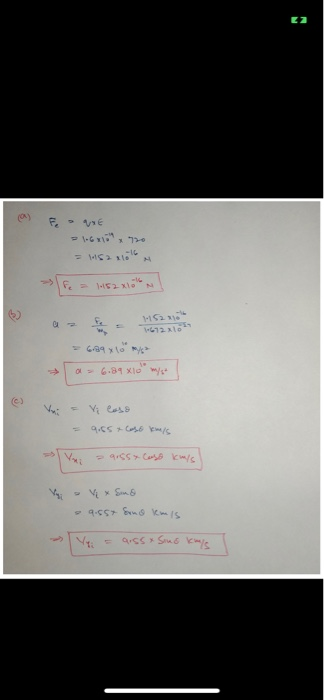 (a) Fe = q × E
= 1.6 × 10⁻¹⁹ × 720
= 1.152 × 10⁻¹⁶ N
⇒ Fe = 1.152 × 10⁻¹⁶ N
(b) a = Fe/mp = 1.152 × 10⁻¹⁶ / 1.672 × 10⁻²⁷
= 6.89 × 10¹⁰ m/s²
⇒ a = 6.89 × 10¹⁰ m/s²
(c) Vxi = Vi Cosθ
= 9.55 × Cosθ Km/s
⇒ Vxi = 9.55 × Cosθ Km/s
Vyi = Vi × Sinθ
= 9.55 × Sinθ Km/s
⇒ Vyi = 9.55 × Sinθ Km/s